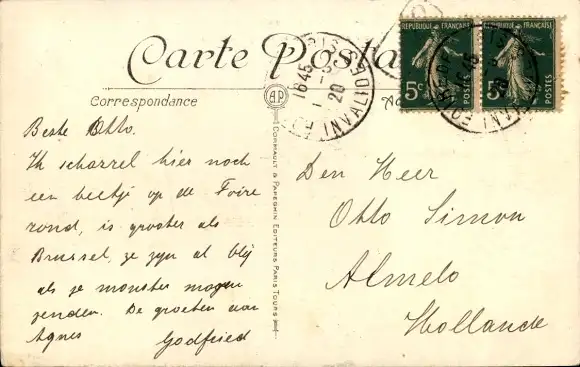 Carte Postale
Correspondance
Beste Otto.
Ik scharrel hier noch
een beetje op de Foire
rond, is grooter als
Brussel, ze zyn al bly
als ze monster mogen
zenden. De groeten aan
Agnes Godfried
CORMAULT & PAPEGHIN EDITEURS PARIS TOURS
A.P.
Den Heer
Otto Simon
Almelo
Hollande
REPUBLIQUE FRANÇAISE
5c POSTES
REPUBLIQUE FRANÇAISE
5c POSTES
PARIS
16 45
20
INVALIDES